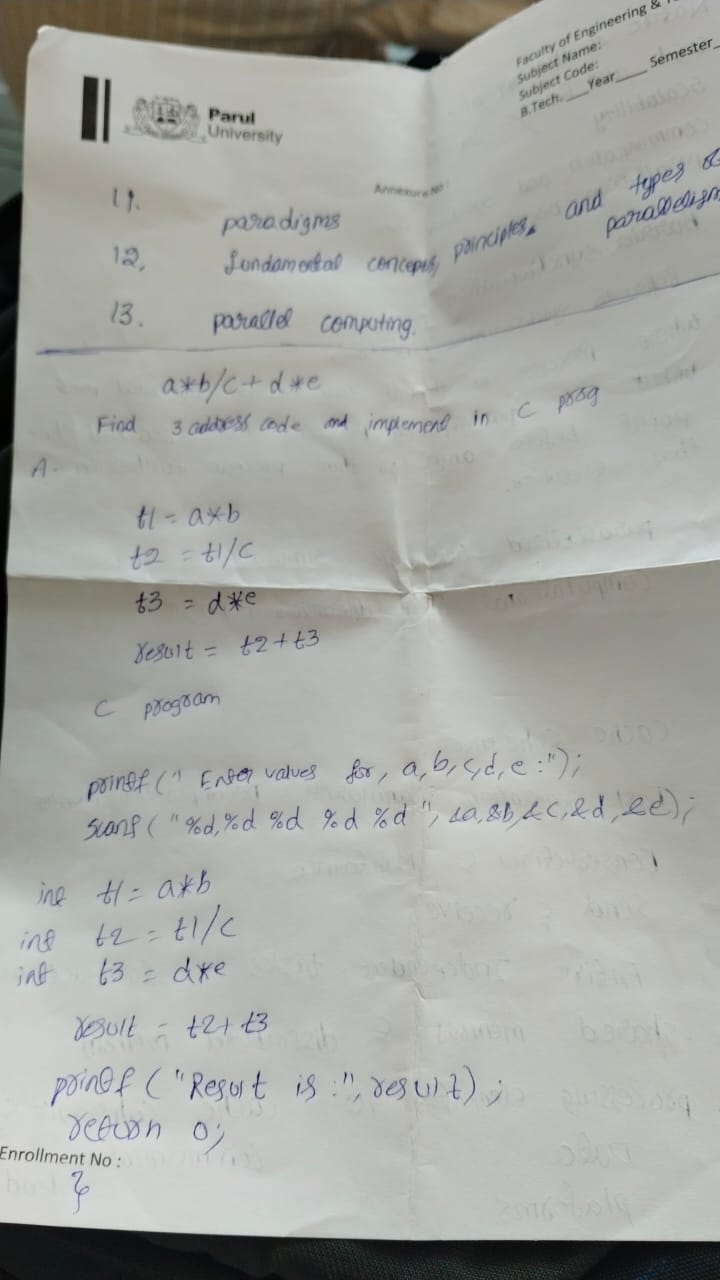 Faculty of Engineering &
Subject Name:
Subject Code:
B.Tech. ___Year____ Semester_
Parul
University
Annexure No:
11. paradigms
12. fundamental concepts, principles, and types of
13. parallel computing.
a*b/c+d*e
Find 3 address code and implement in C prog
A.
t1 = a*b
t2 = t1/c
t3 = d*e
result = t2+t3
C program
printf (" Enter values for, a,b,c,d,e :");
scanf ( "%d,%d %d %d %d ", &a,&b,&c,&d,&e);
int t1 = a*b
int t2 = t1/c
int t3 = d*e
result = t2+t3
printf ("Result is :", result);
return 0;
Enrollment No :
}